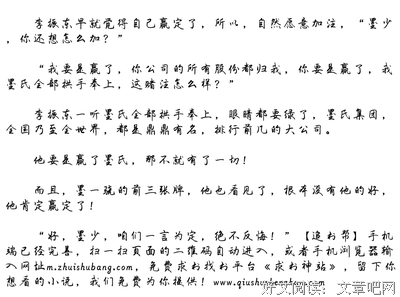 李振东早就觉得自己赢定了，所以，自然愿意加注，“墨少
，你还想怎么加？”
“我要是赢了，你公司的所有股份都归我，你要是赢了，我
墨氏全部拱手奉上，这赌注怎么样？”
李振东一听墨氏全部拱手奉上，眼睛都要绿了，墨氏集团，
全国乃至全世界，都是鼎鼎有名，排行前几的大公司。
他要是赢了墨氏，那不就有了一切！
而且，墨一骁的前三张牌，他也看见了，根本没有他的好，
他肯定赢定了！
“好，墨少，咱们一言为定，绝不反悔！”【追书帮】手机
端已经完善，扫一扫页面的二维码自动进入，或者手机浏览器输
入网址m.zhuishubang.com，免费求书找书平台《求书神站》，留下你
想看的小说，我们免费为你提供！www.qiushushenzhan.com
好文阅读：文章吧网